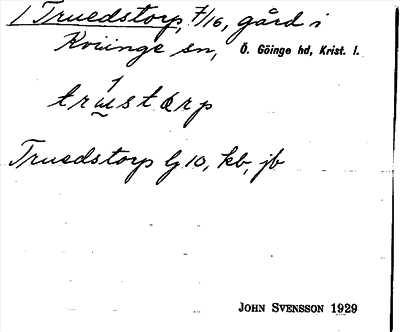 1 Truedstorp, 7/16, gård i
Kviinge sn, Ö. Göinge hd, Krist. l.
trustårp
Truedstorp lj 10, kb, jb
JOHN SVENSSON 1929